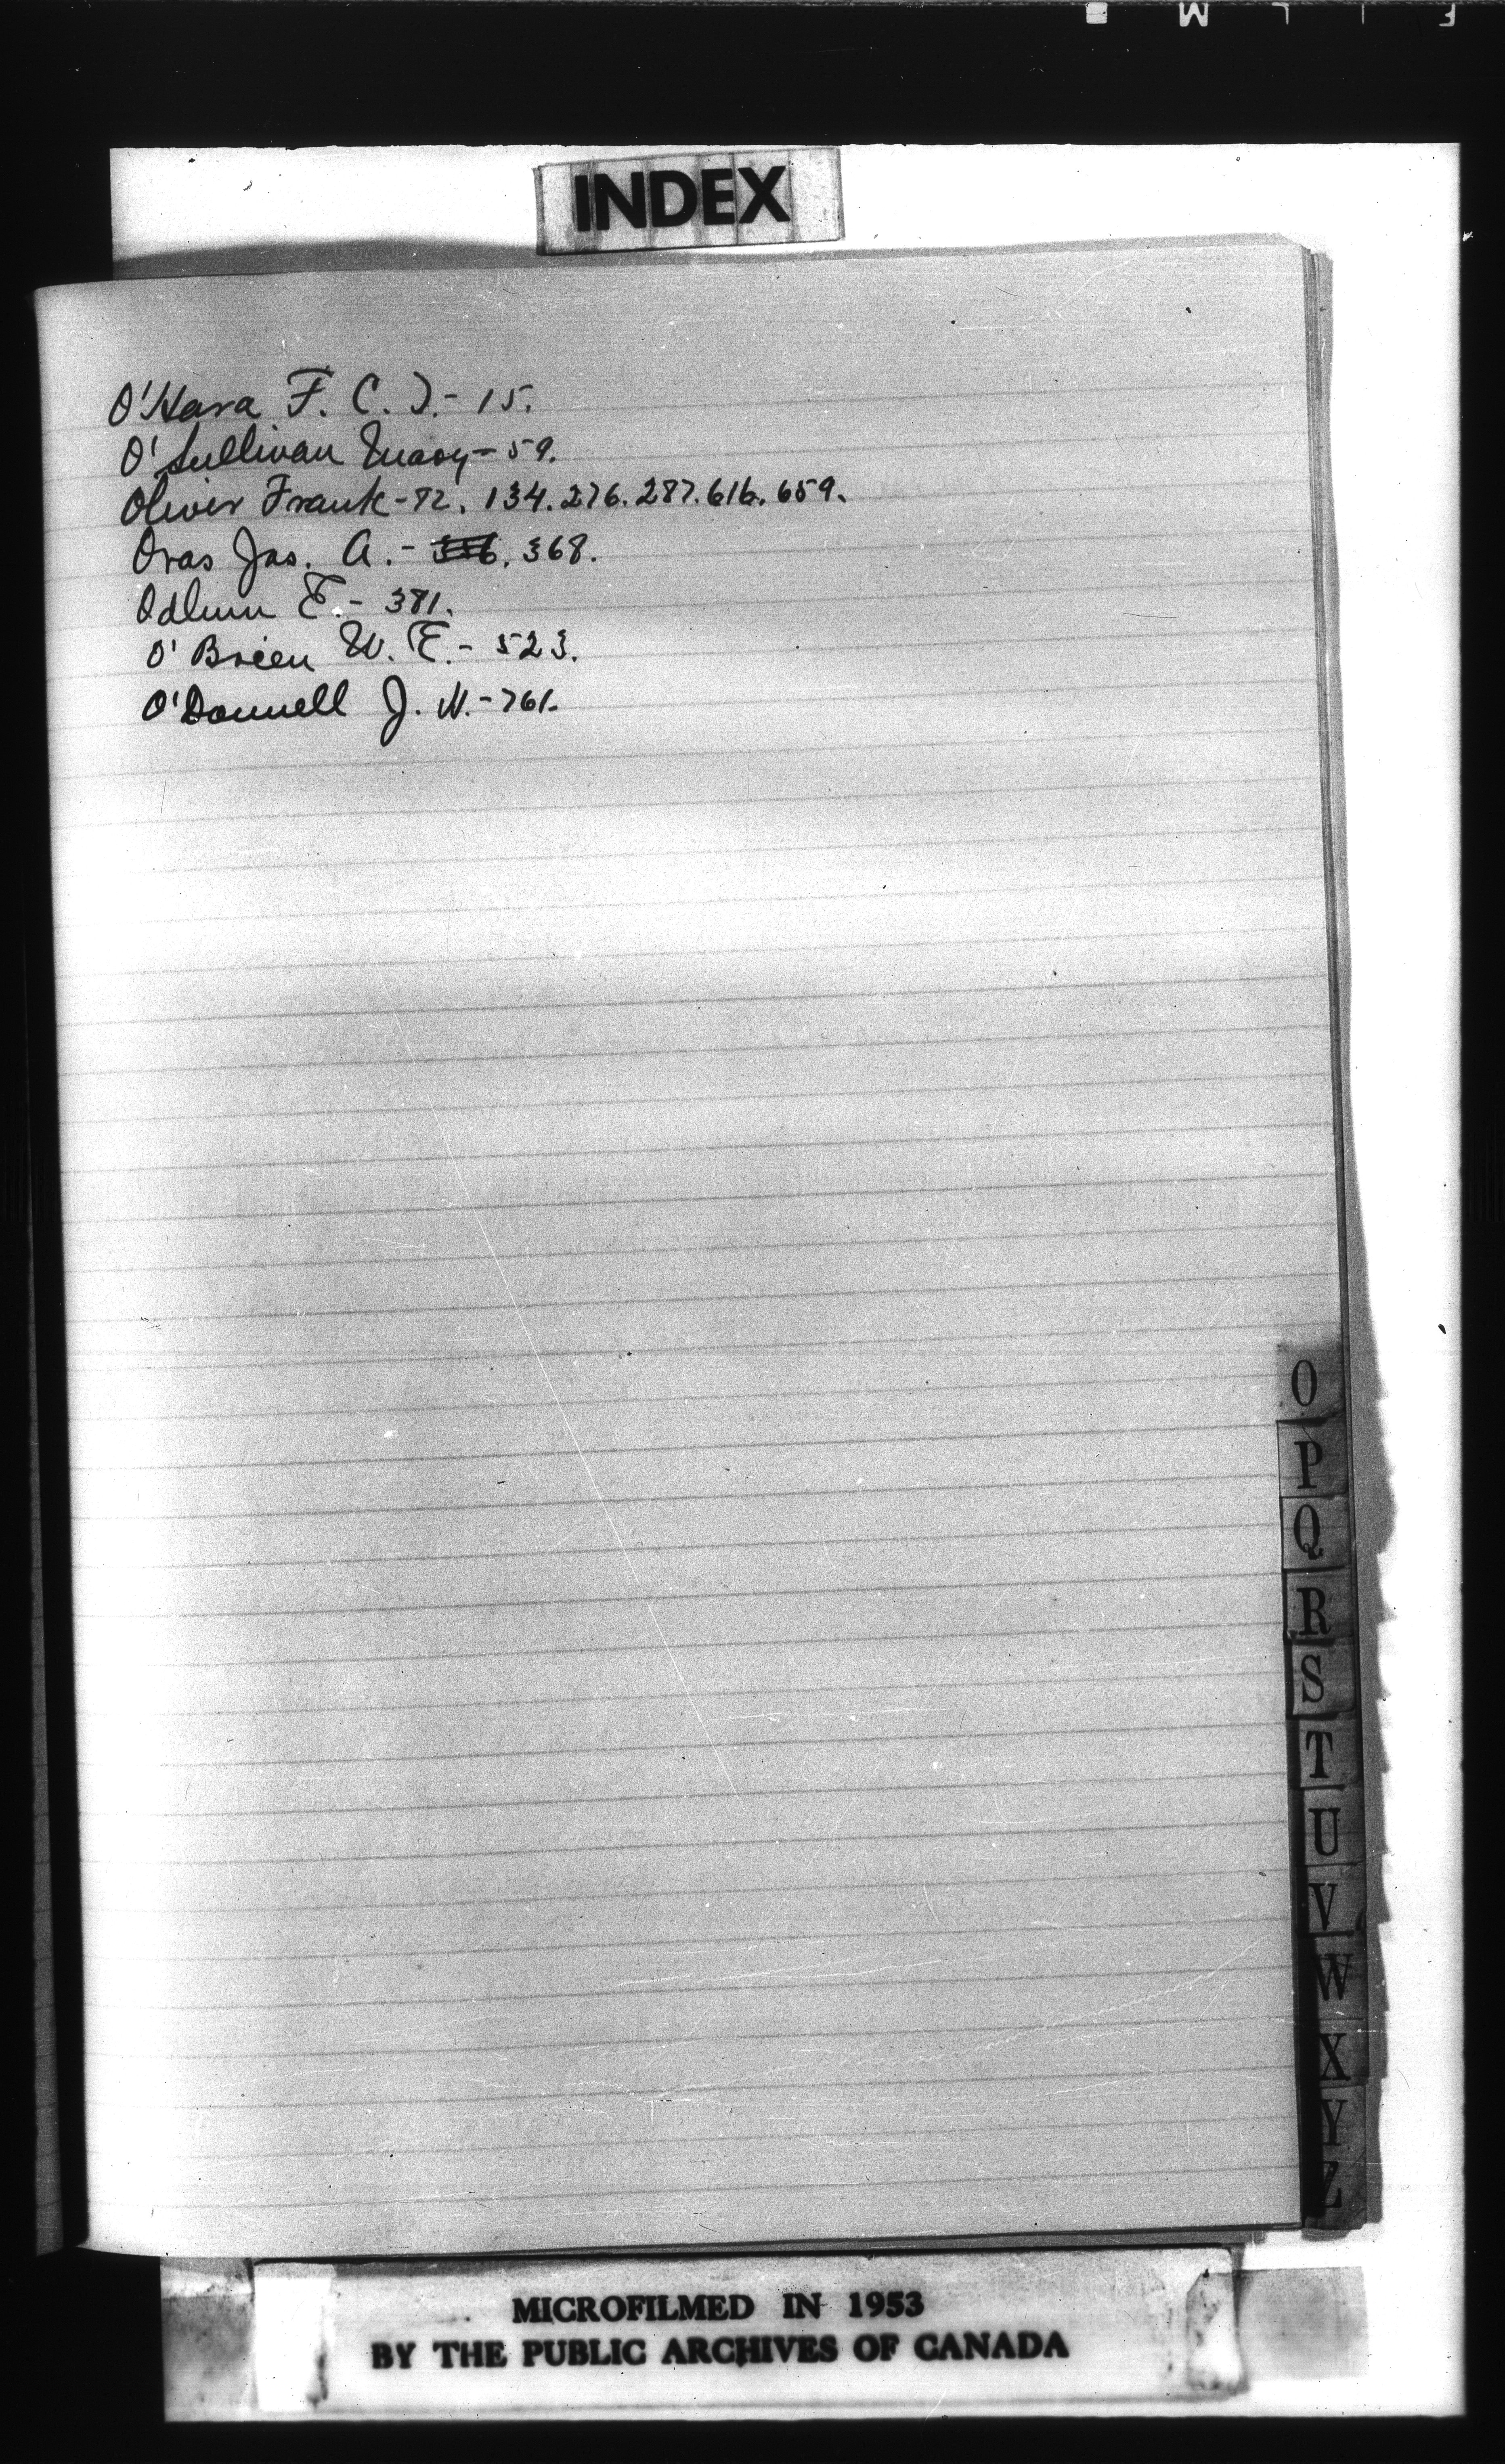 INDEX
O'Hara F. C. T.- 15.
O'Sullivan Mary - 59.
Oliver Frank - 82. 134. 276. 287. 616. 659.
Oras Jas. A. - 368.
Odlum E. - 381.
O'Brien W. E. - 523.
O'Donnell J. H. - 761.
O
P
Q
R
S
T
U
V
W
X
Y
Z
MICROFILMED IN 1953
BY THE PUBLIC ARCHIVES OF CANADA